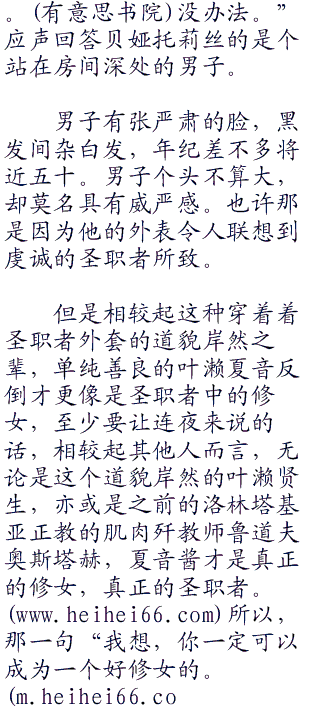 。(有意思书院)没办法。”
应声回答贝娅托莉丝的是个
站在房间深处的男子。
男子有张严肃的脸，黑
发间杂白发，年纪差不多将
近五十。男子个头不算大，
却莫名具有威严感。也许那
是因为他的外表令人联想到
虔诚的圣职者所致。
但是相较起这种穿着着
圣职者外套的道貌岸然之
辈，单纯善良的叶濑夏音反
倒才更像是圣职者中的修
女，至少要让连夜来说的
话，相较起其他人而言，无
论是这个道貌岸然的叶濑贤
生，亦或是之前的洛林塔基
亚正教的肌肉歼教师鲁道夫
奥斯塔赫，夏音酱才是真正
的修女，真正的圣职者。
(www.heihei66.com)所以，
那一句“我想，你一定可以
成为一个好修女的。
(m.heihei66.co